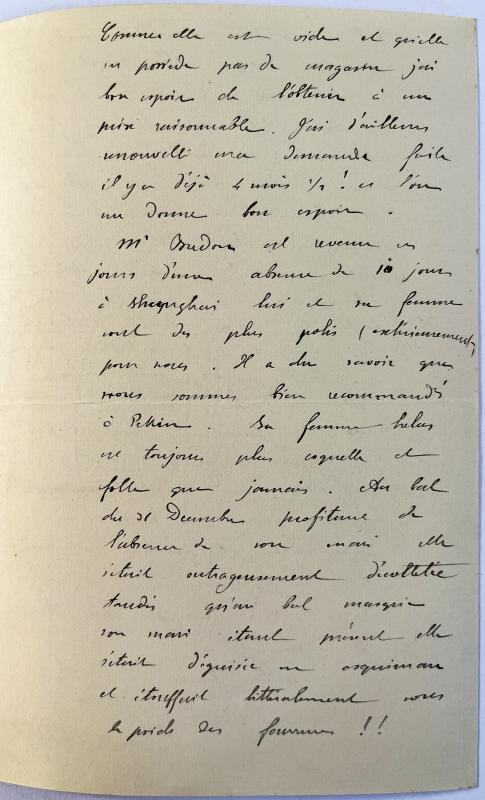 Comme elle est vide et qu'elle
ne possède pas de magasin j'ai
bon espoir de l'obtenir à un
prix raisonnable. J'ai d'ailleurs
renouvellé ma demande faite
il y a déjà 4 mois 1/2 ! et l'on
me donne bon espoir.
Mr Bredon est revenu ces
jours d'une absence de 10 jours
à Shanghai lui et sa femme
sont des plus polis (extérieurement)
pour nous. Il a du savoir que
nous sommes bien recommandés
à Pékin. Sa femme helas
est toujours plus coquette et
folle que jamais. Au bal
du 31 Decembre profitant de
l'absence de son mari elle
s'était outrageusement décolletée
tandis qu'au bal masqué
son mari étant présent elle
s'était déguisée en esquimau
et étouffait littéralement sous
le poids des fourrures !!